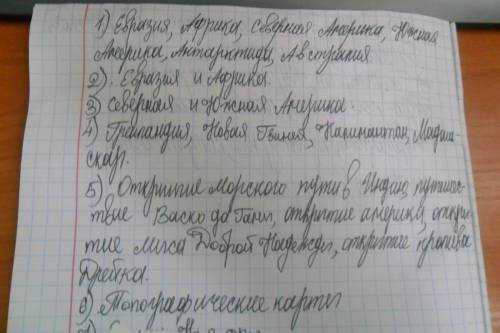 1) Евразия, Африка, Северная Америка, Южная
Америка, Антарктида, Австралия
2) Евразия и Африка
3) Северная и Южная Америка.
4) Гренландия, Новая Гвинея, Калимантан, Мадага-
скар.
5) Открытие Морского пути в Индию, путешес-
твие Васко да Гамы, открытие америки, откры-
тие мыса Доброй Надежды, открытие пролива
Дрейка.
6) Топографические карты